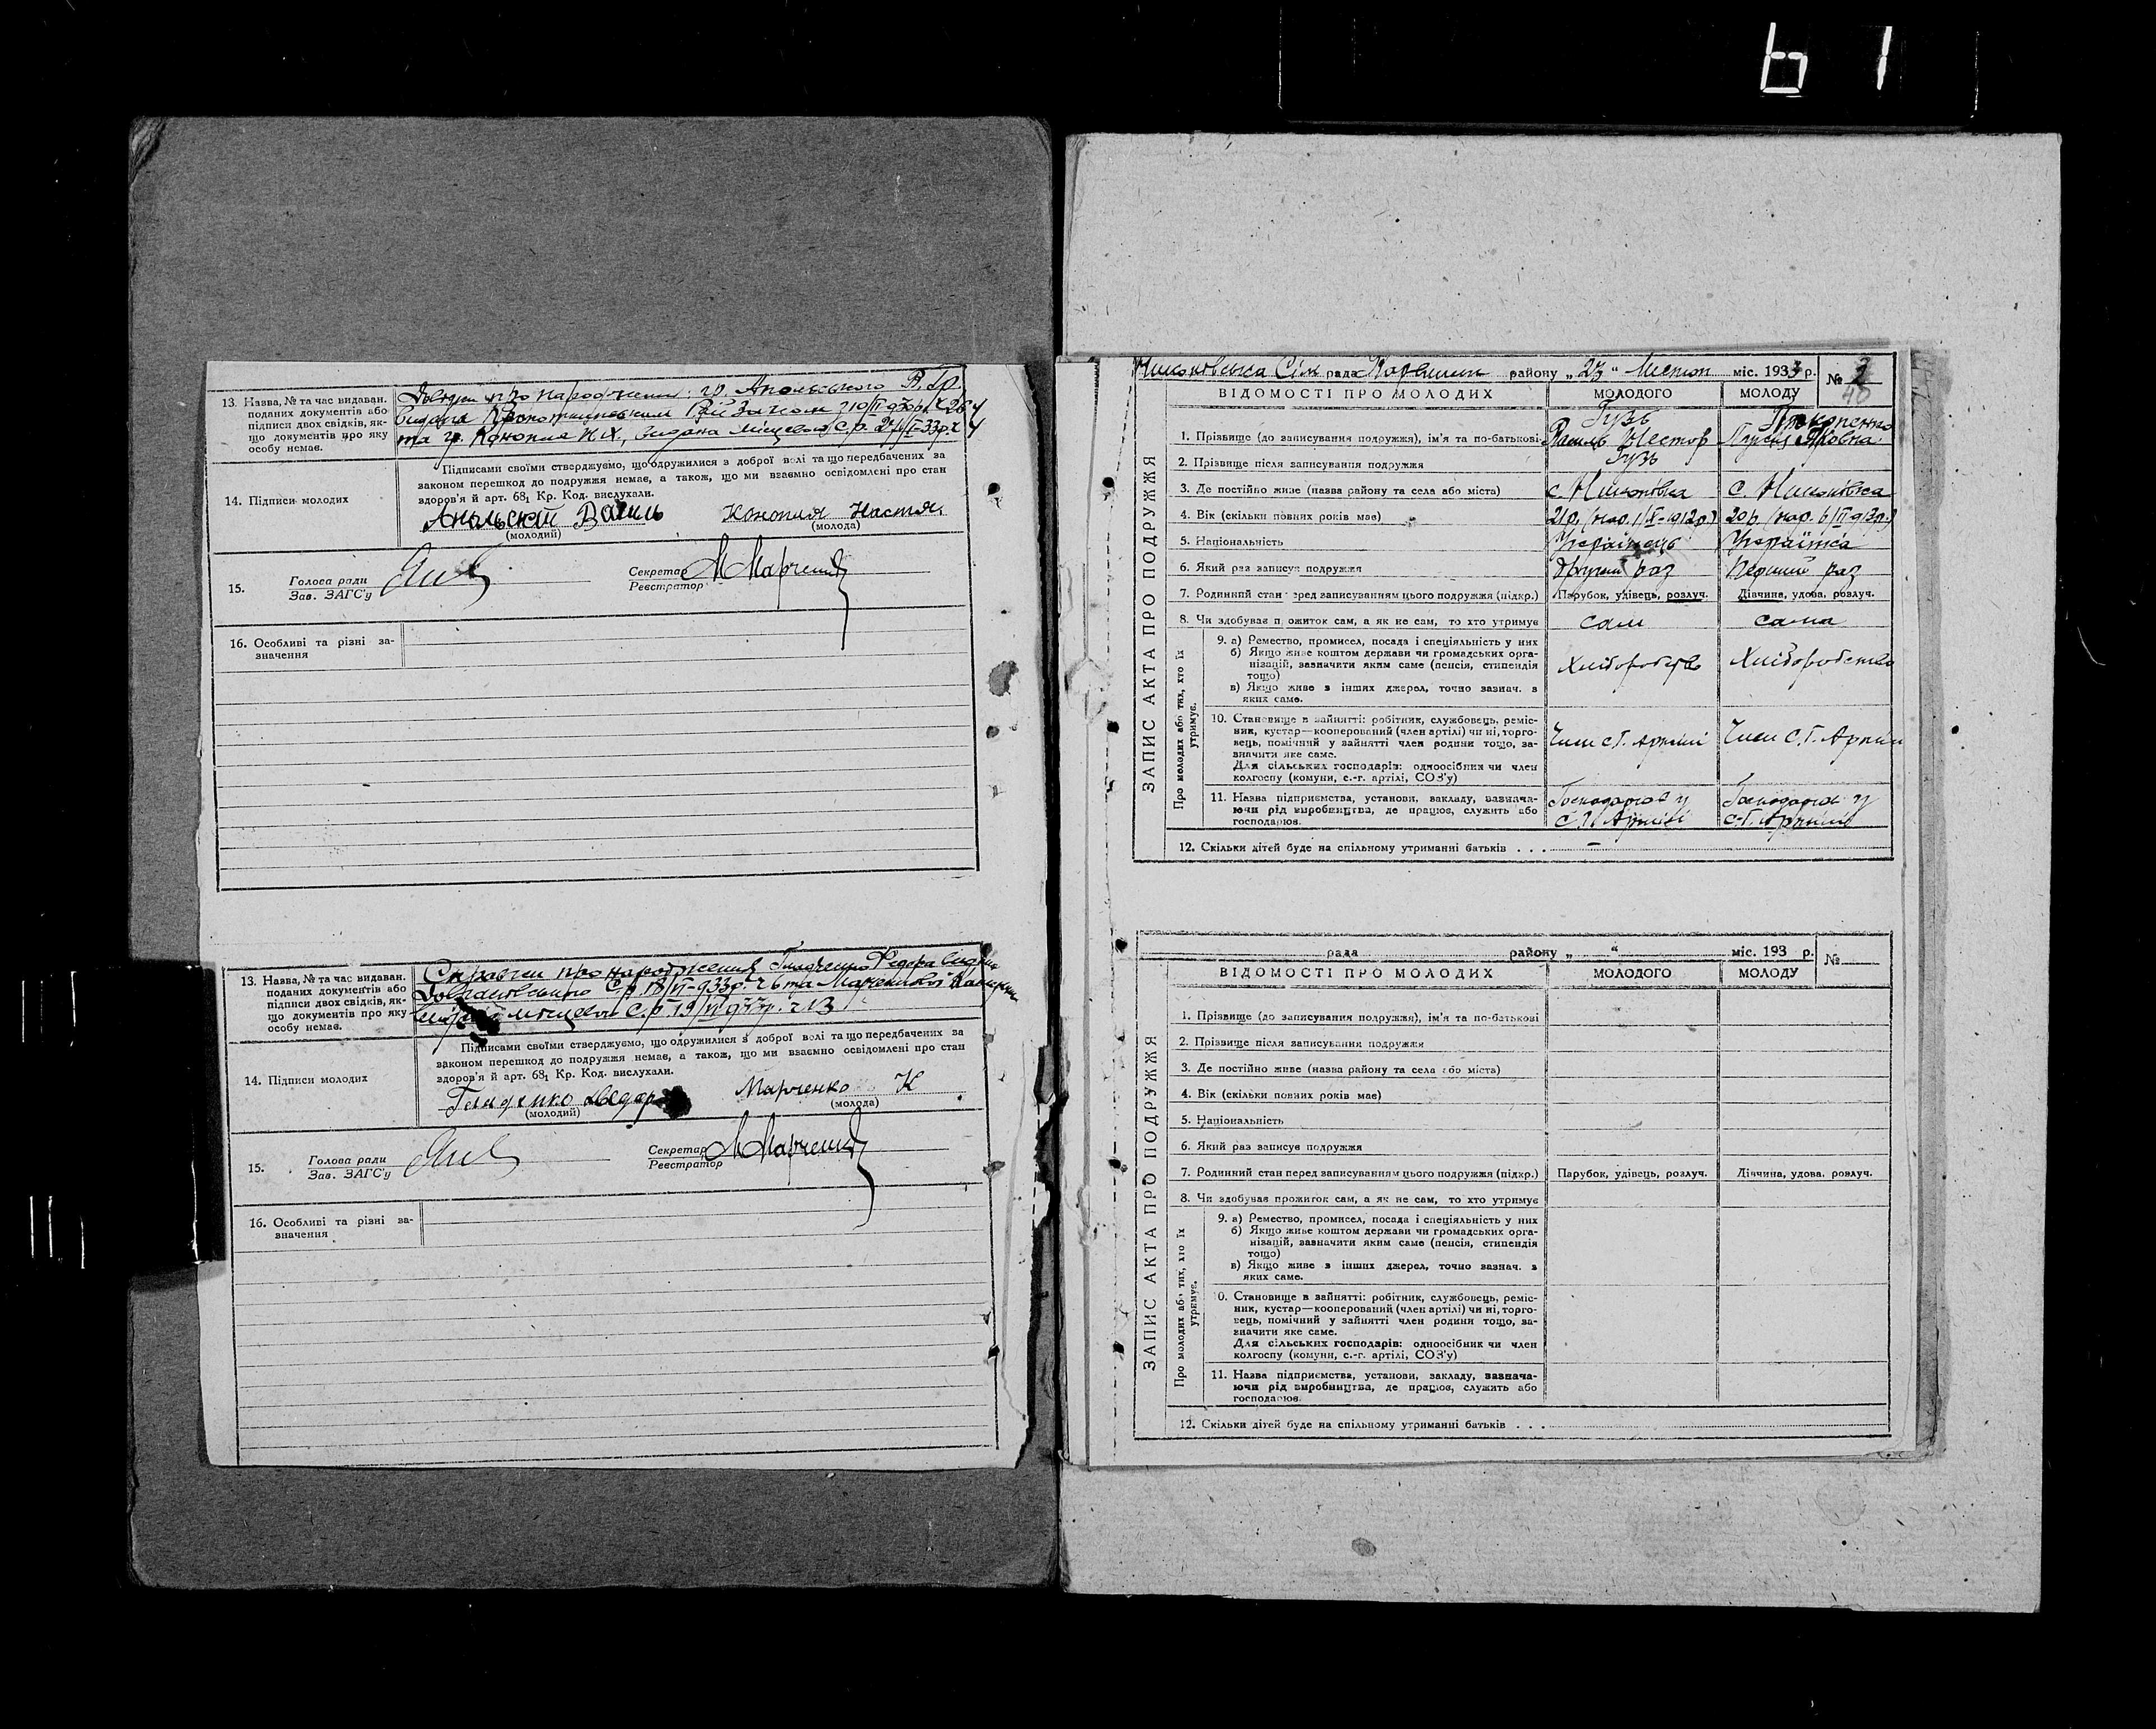 61
13. Назва, № та час видаван.
поданих документів або
підписи двох свідків, як-
що документів про яку
особу немає.
про народження: гр. Апольського В. Гр.
видана
та гр. Конопля Н. Х., видана С.р.
14. Підписи молодих
Підписами своїми стверджуємо, що одружилися з доброї волі та що передбачених за
законом перешкод до подружжя немає, а також, що ми взаємно освідомлені про стан
здоров'я й арт. 68₁ Кр. Код. вислухали.
Апольскій Василь Конопля Настя.
(молодий) (молода)
15. Голова ради
Зав. ЗАГС'у
Секретар ММарченко
Реєстратор
16. Особливі та різні за-
значення
13. Назва, № та час видаван.
поданих документів або
підписи двох свідків, як-
що документів про яку
особу немає.
Справки про народження Гладченко Федора
С.р. 18/VI-933р. ч 6 та Марченкової
С.р. 19/VI 933р. ч 13
14. Підписи молодих
Підписами своїми стверджуємо, що одружилися з доброї волі та що передбачених за
законом перешкод до подружжя немає, а також, що ми взаємно освідомлені про стан
здоров'я й арт. 68₁ Кр. Код. вислухали.
Марченко К
(молодий) (молода)
15. Голова ради
Зав. ЗАГС'у
Секретар ММарченко
Реєстратор
16. Особливі та різні за-
значення
Сіл рада району „23“ Листоп міс. 1933 р. № 2
40
ВІДОМОСТІ ПРО МОЛОДИХ МОЛОДОГО МОЛОДУ
ЗАПИС АКТА ПРО ПОДРУЖЖЯ
1. Прізвище (до записування подружжя), ім'я та по-батькові Гузь Василь Нестор Прокопенко
2. Прізвище після записування подружжя Гузь
3. Де постійно живе (назва району та села або міста) с. Никонівка с. Никонівка
4. Вік (скільки повних років має) 21р. (нар. 1/X-1912р.) 20р. (нар. 6/II-913р.)
5. Національність Українець Українка
6. Який раз записує подружжя Другий раз Перший раз
7. Родинний стан перед записуванням цього подружжя (підкр.) Парубок, удівець, розлуч. Дівчина, удова, розлуч.
8. Чи здобуває прожиток сам, а як не сам, то хто утримує сам сама
Про молодих або тих, хто їх
утримує.
9. а) Ремество, промисел, посада і спеціяльність у них
б) Якщо живе коштом держави чи громадських орга-
нізацій, зазначити яким саме (пенсія, стипендія
тощо)
в) Якщо живе з інших джерел, точно зазнач. з
яких саме.
Хліборобство Хліборобство
10. Становище в зайнятті: робітник, службовець, реміс-
ник, кустар—кооперований (член артілі) чи ні, торго-
вець, помічний у зайнятті член родини тощо, за-
значити яке саме.
Для сільських господарів: одноосібник чи член
колгоспу (комуни, с.-г. артілі, СОЗ'у)
Член С.Г. Артілі Член С.Г. Артілі
11. Назва підприємства, установи, закладу, зазнача-
ючи рід виробництва, де працює, служить або
господарює.
Господарює у Господарює у
С.Г. Артілі С.Г. Артілі
12. Скільки дітей буде на спільному утриманні батьків . . . –
рада району „ “ міс. 193 р. №
ВІДОМОСТІ ПРО МОЛОДИХ МОЛОДОГО МОЛОДУ
ЗАПИС АКТА ПРО ПОДРУЖЖЯ
1. Прізвище (до записування подружжя), ім'я та по-батькові
2. Прізвище після записування подружжя
3. Де постійно живе (назва району та села або міста)
4. Вік (скільки повних років має)
5. Національність
6. Який раз записує подружжя
7. Родинний стан перед записуванням цього подружжя (підкр.) Парубок, удівець, розлуч. Дівчина, удова, розлуч.
8. Чи здобуває прожиток сам, а як не сам, то хто утримує
Про молодих або тих, хто їх
утримує.
9. а) Ремество, промисел, посада і спеціяльність у них
б) Якщо живе коштом держави чи громадських орга-
нізацій, зазначити яким саме (пенсія, стипендія
тощо)
в) Якщо живе з інших джерел, точно зазнач. з
яких саме.
10. Становище в зайнятті: робітник, службовець, реміс-
ник, кустар—кооперований (член артілі) чи ні, торго-
вець, помічний у зайнятті член родини тощо, за-
значити яке саме.
Для сільських господарів: одноосібник чи член
колгоспу (комуни, с.-г. артілі, СОЗ'у)
11. Назва підприємства, установи, закладу, зазнача-
ючи рід виробництва, де працює, служить або
господарює.
12. Скільки дітей буде на спільному утриманні батьків . . .